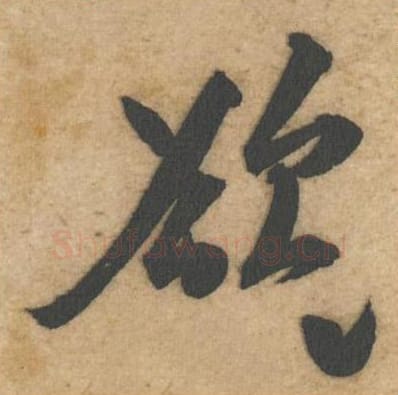 欲
Shufawang.cn